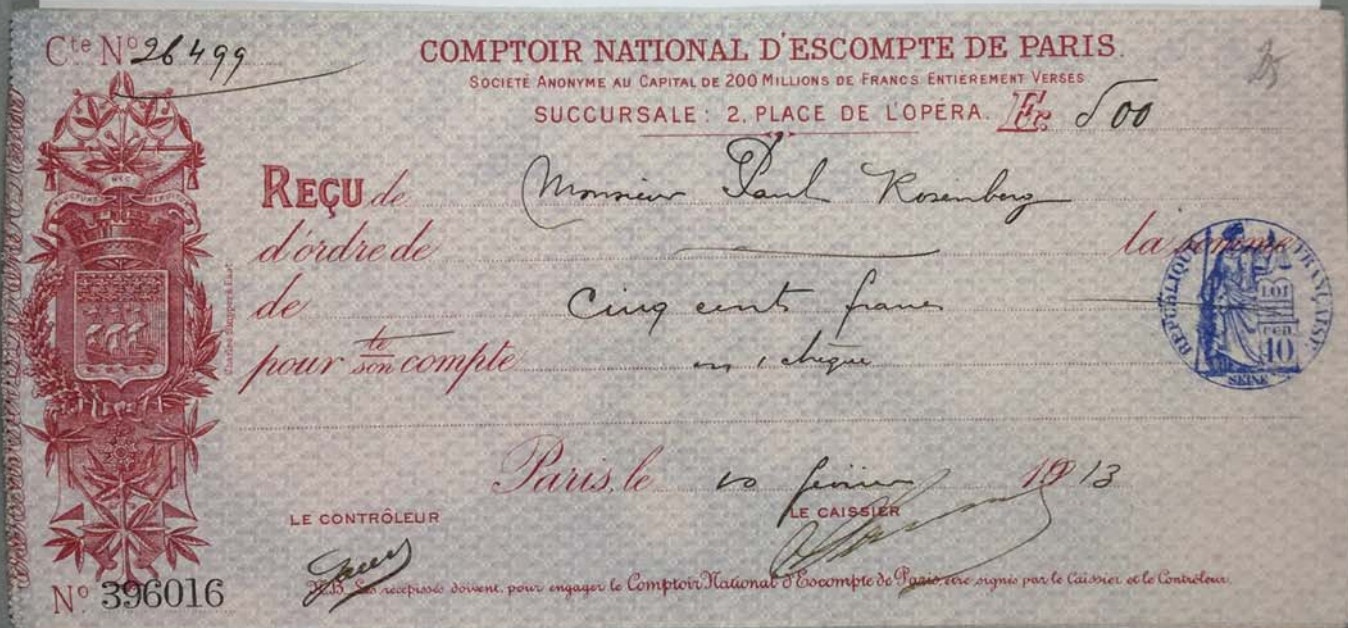 Cte No 26499
COMPTOIR NATIONAL D'ESCOMPTE DE PARIS.
SOCIÉTÉ ANONYME AU CAPITAL DE 200 MILLIONS DE FRANCS ENTIÈREMENT VERSÉS
SUCCURSALE: 2, PLACE DE L'OPÉRA. Frs 500
25
REÇU de Monsieur Paul Rosenberg
d'ordre de la somme
de Cinq cents francs
pour le/son compte en 1 chèque
RÉPUBLIQUE FRANÇAISE
LOI
10
SEINE
FLUCTUAT NEC MERGITUR
Paris, le 10 février 1913
LE CONTRÔLEUR LE CAISSIER
N.B. Les récépissés doivent, pour engager le Comptoir National d'Escompte de Paris, être signés par le Caissier et le Contrôleur.
No 396016